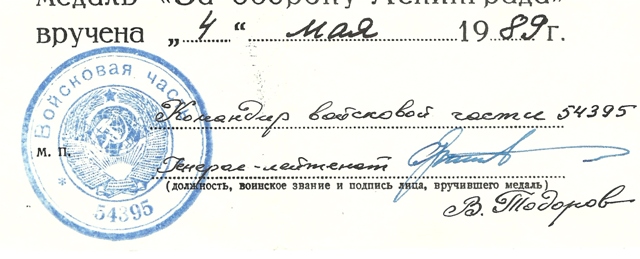 медаль «За оборону Ленинграда»
вручена „ 4 “ мая 1989г.
Войсковая часть
Командир войсковой части 54395
М. П.
Генерал-лейтенант
(должность, воинское звание и подпись лица, вручившего медаль)
* 54395
В. Тодоров